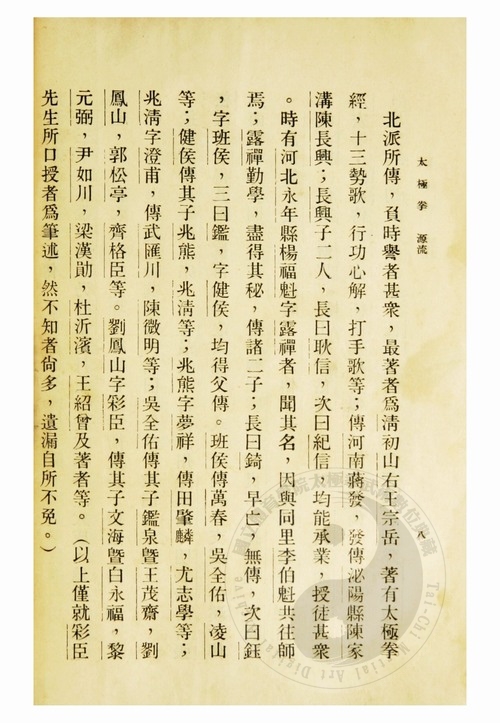 太極拳　源流
八
北派所傳，負時譽者甚衆，最著者爲淸初山右王宗岳，著有太極拳
經，十三勢歌，行功心解，打手歌等；傳河南蔣發，發傳泌陽縣陳家
溝陳長興；長興子二人，長曰耿信，次曰紀信，均能承業，授徒甚衆
。時有河北永年縣楊福魁字露禪者，聞其名，因與同里李伯魁共往師
焉；露禪勤學，盡得其秘，傳諸二子；長曰錡，早亡，無傳，次曰鈺
，字班侯，三曰鑑，字健侯，均得父傳。班侯傳萬春，吳全佑，凌山
等；健侯傳其子兆熊，兆淸等；兆熊字夢祥，傳田肇麟，尤志學等；
兆淸字澄甫，傳武匯川，陳微明等；吳全佑傳其子鑑泉曁王茂齋，劉
鳳山，郭松亭，齊格臣等。劉鳳山字彩臣，傳其子文海曁白永福，黎
元弼，尹如川，梁漢勛，杜沂濱，王紹曾及著者等。（以上僅就彩臣
先生所口授者爲筆述，然不知者尙多，遺漏自所不免。）
Tai-Chi Martial Art Digital